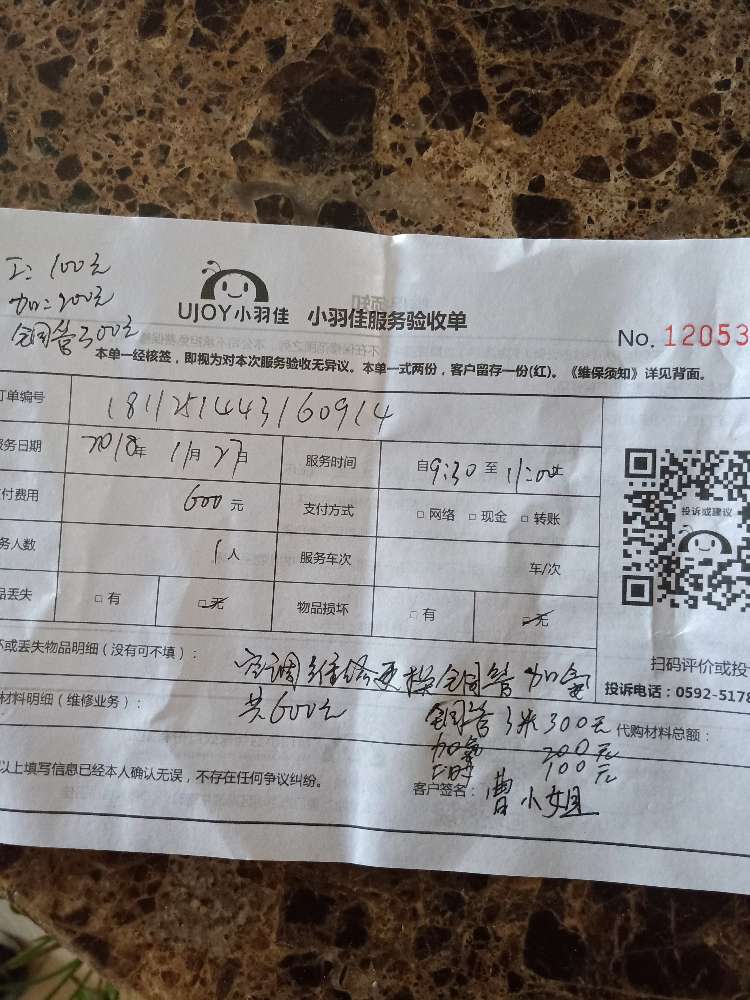 工：100元
加：200元
铜管300元
UJOY小羽佳 小羽佳服务验收单
No. 12053
本单一经核签，即视为对本次服务验收无异议。本单一式两份，客户留存一份(红)。《维保须知》详见背面。
订单编号 1811251443160914
服务日期 2018年 11月 27日 服务时间 自9:30 至 11:00止
付费用 600元 支付方式 □ 网络 □ 现金 □ 转账
务人数 1人 服务车次 车/次
品丢失 □ 有 □ 无 物品损坏 □ 有 □ 无
投诉或建议
扫码评价或投
投诉电话：0592-5178
坏或丢失物品明细（没有可不填）： 空调维修更换铜管加氟
材料明细（维修业务）： 共600元
铜管3米300元 代购材料总额：
加氟 200元
100元
以上填写信息已经本人确认无误，不存在任何争议纠纷。 客户签名： 曹小姐